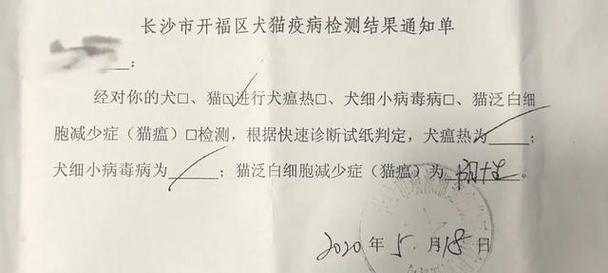 长沙市开福区犬猫疫病检测结果通知单
:
经对你的犬□、猫☑进行犬瘟热□、犬细小病毒病□、猫泛白细
胞减少症（猫瘟）□检测，根据快速诊断试纸判定，犬瘟热为____；
犬细小病毒病为____；猫泛白细胞减少症（猫瘟）为 阳性 。
2020年5月18日